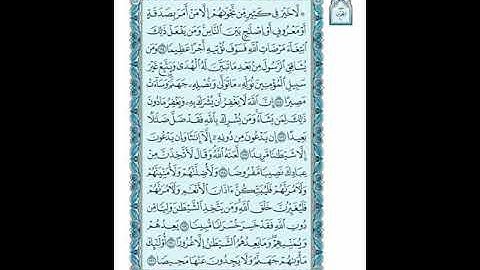 ۞ لَّا خَيْرَ فِي كَثِيرٍ مِّن نَّجْوَىٰهُمْ إِلَّا مَنْ أَمَرَ بِصَدَقَةٍ
أَوْ مَعْرُوفٍ أَوْ إِصْلَٰحٍ بَيْنَ النَّاسِ وَمَن يَفْعَلْ ذَٰلِكَ
ابْتِغَاءَ مَرْضَاتِ اللَّهِ فَسَوْفَ نُؤْتِيهِ أَجْرًا عَظِيمًا ۝ وَمَن
يُشَاقِقِ الرَّسُولَ مِن بَعْدِ مَا تَبَيَّنَ لَهُ الْهُدَىٰ وَيَتَّبِعْ غَيْرَ
سَبِيلِ الْمُؤْمِنِينَ نُوَلِّهِ مَا تَوَلَّىٰ وَنُصْلِهِ جَهَنَّمَ وَسَاءَتْ
مَصِيرًا ۝ إِنَّ اللَّهَ لَا يَغْفِرُ أَن يُشْرَكَ بِهِ وَيَغْفِرُ مَا دُونَ
ذَٰلِكَ لِمَن يَشَاءُ وَمَن يُشْرِكْ بِاللَّهِ فَقَدْ ضَلَّ ضَلَٰلًا
بَعِيدًا ۝ إِن يَدْعُونَ مِن دُونِهِ إِلَّا إِنَٰثًا وَإِن يَدْعُونَ
إِلَّا شَيْطَٰنًا مَّرِيدًا ۝ لَّعَنَهُ اللَّهُ وَقَالَ لَأَتَّخِذَنَّ مِنْ
عِبَادِكَ نَصِيبًا مَّفْرُوضًا ۝ وَلَأُضِلَّنَّهُمْ وَلَأُمَنِّيَنَّهُمْ
وَلَآمُرَنَّهُمْ فَلَيُبَتِّكُنَّ ءَاذَانَ الْأَنْعَٰمِ وَلَآمُرَنَّهُمْ
فَلَيُغَيِّرُنَّ خَلْقَ اللَّهِ وَمَن يَتَّخِذِ الشَّيْطَٰنَ وَلِيًّا مِّن
دُونِ اللَّهِ فَقَدْ خَسِرَ خُسْرَانًا مُّبِينًا ۝ يَعِدُهُمْ
وَيُمَنِّيهِمْ وَمَا يَعِدُهُمُ الشَّيْطَٰنُ إِلَّا غُرُورًا ۝ أُولَٰئِكَ
مَأْوَىٰهُمْ جَهَنَّمُ وَلَا يَجِدُونَ عَنْهَا مَحِيصًا ۝